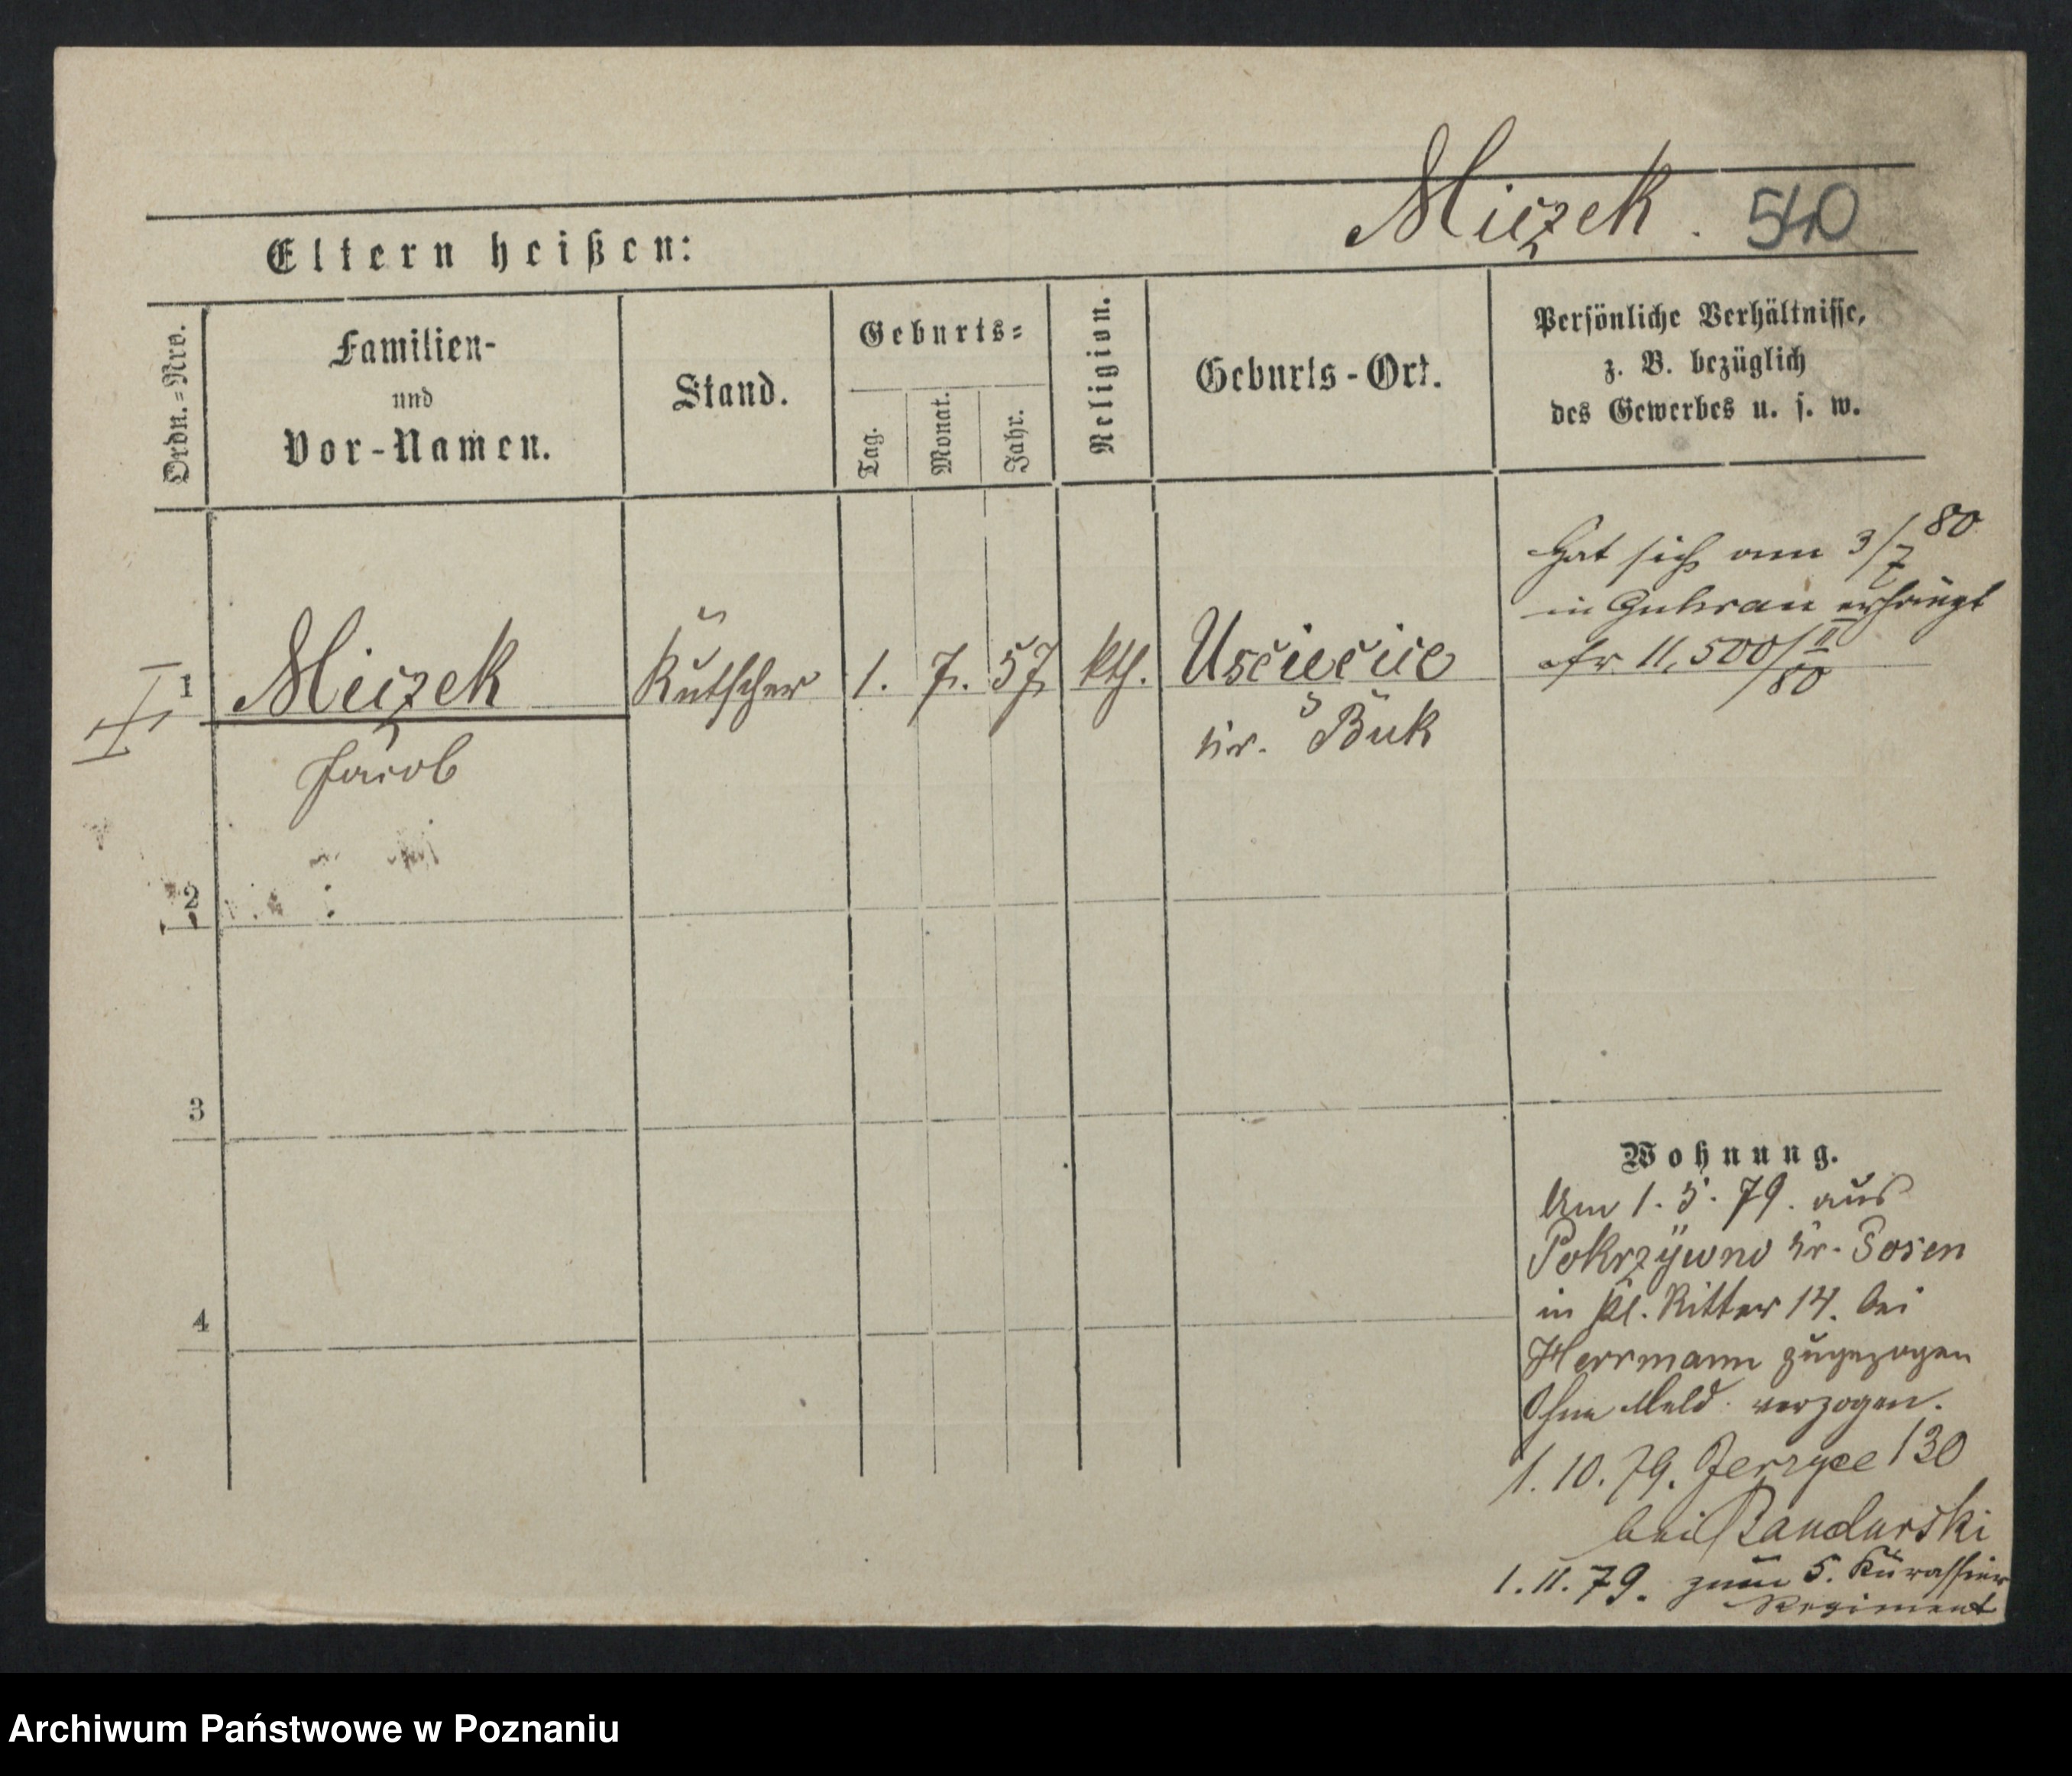 Mięzek. 540
Eltern heißen:
Ordn.-Nro.
Familien-
und
Vor-Namen.
Stand.
Geburts-
Tag.
Monat.
Jahr.
Religion.
Geburts-Ort.
Persönliche Verhältnisse,
z. B. bezüglich
des Gewerbes u. s. w.
Hat sich am 3/7 80
in Guhrau erhängt
cfr. 11,500/II 80
1 Mięzek Kutscher 1. 7. 57 kth. Usciecice
Kr. Buk
Jacob
2
3
Wohnung.
Am 1. 5. 79. aus
Pokrzywno Kr. Posen
in kl. Ritter 14. bei
4
Herrmann zugezogen
Ohne Meld. verzogen.
1. 10. 79. Jerzyce 130
bei Bandurski
1. 11. 79. zum 5. Kürassier
Regiment
Archiwum Państwowe w Poznaniu